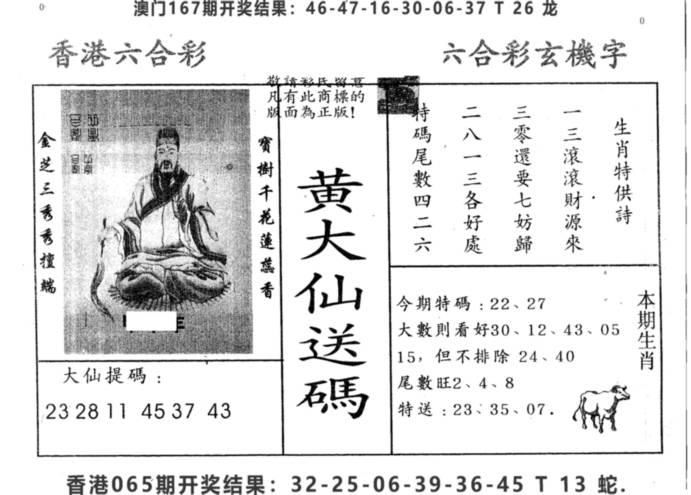 澳门167期开奖结果：46-47-16-30-06-37 T 26 龙
香港六合彩
六合彩玄機字
敬請彩民留意
凡有此商標的
版面為正版！
金芝三秀秀擅端
寶樹千花蓮蕊香
黄大仙送碼
生肖特供詩
一三滾滾財源來
三零還要七妨歸
二八一三各好處
特碼尾數四二六
大仙提碼：
23 28 11 45 37 43
本期生肖
今期特碼：22、27
大數則看好30、12、43、05
15，但不排除 24、40
尾數旺2、4、8
特送：23、35、07．
香港065期开奖结果：32-25-06-39-36-45 T 13 蛇.